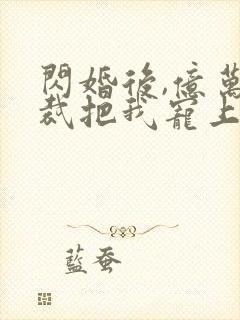 閃婚後,億萬
裁把我寵上
藍蚕